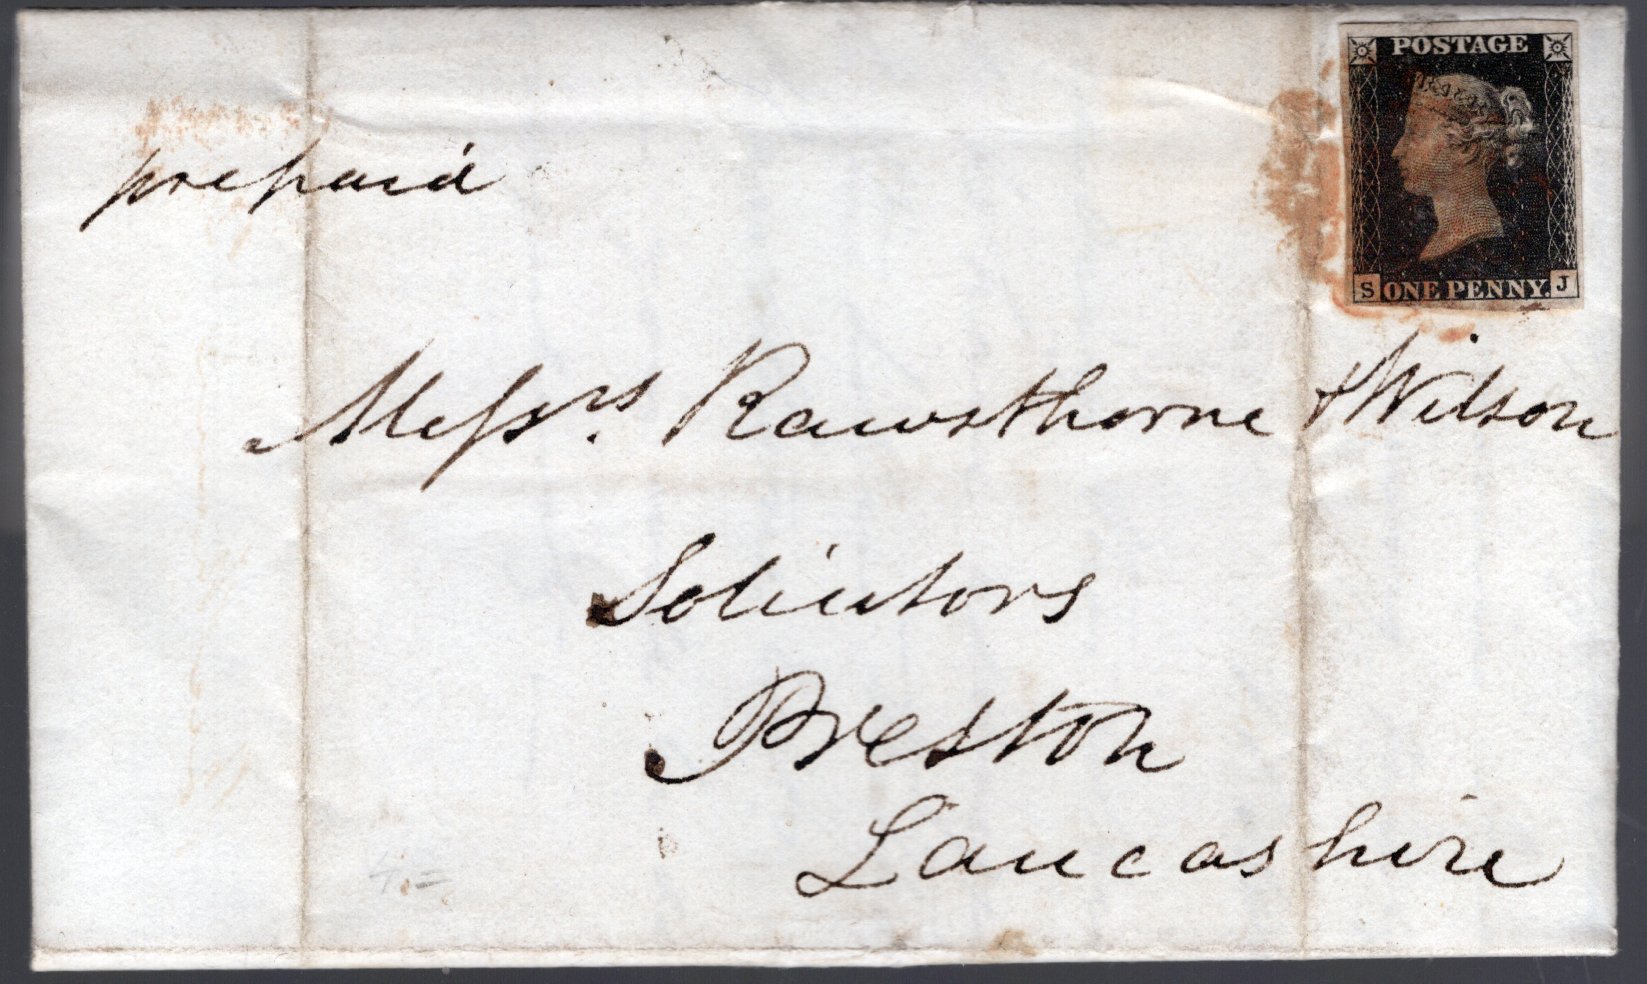 POSTAGE
S ONE PENNY. J
prepaid
Messrs. Rawsthorne & Wilson
Solicitors
Preston
Lancashire